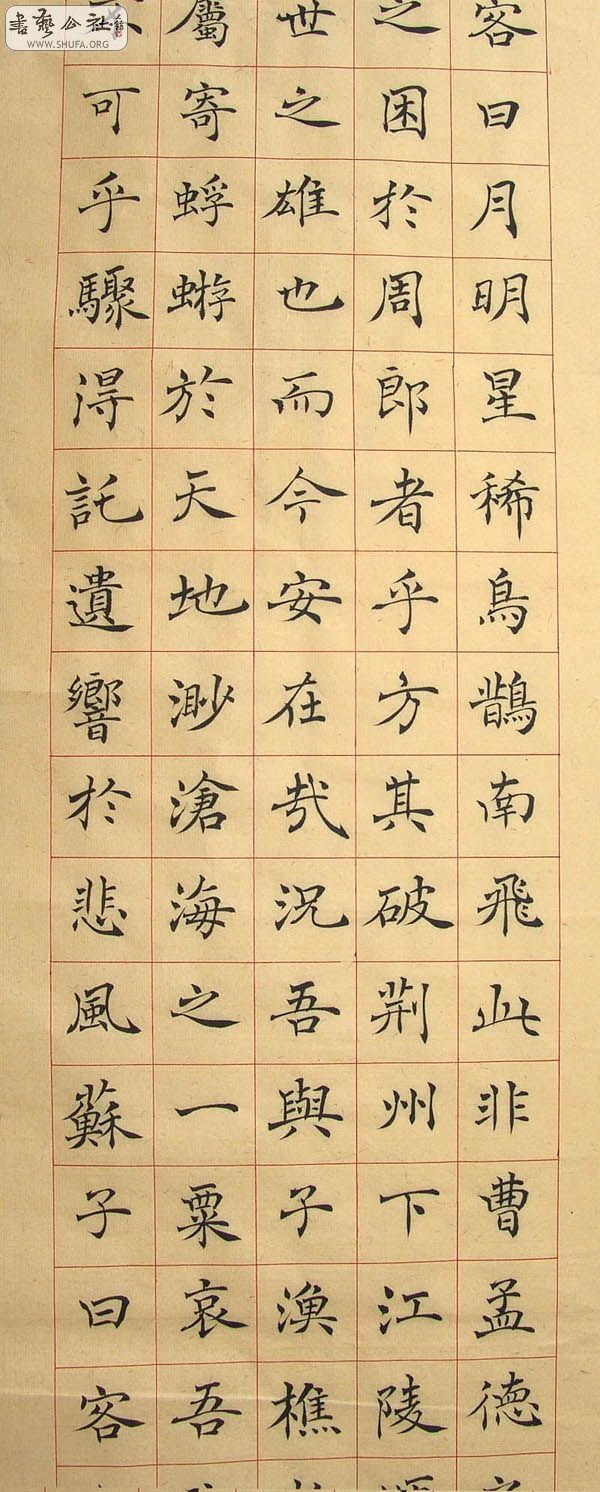 書藝公社
WWW.SHUFA.ORG
客曰月明星稀烏鵲南飛此非曹孟德
之困於周郎者乎方其破荆州下江陵
世之雄也而今安在哉況吾與子漁樵
屬寄蜉蝣於天地渺滄海之一粟哀吾
可乎驟得託遺響於悲風蘇子曰客